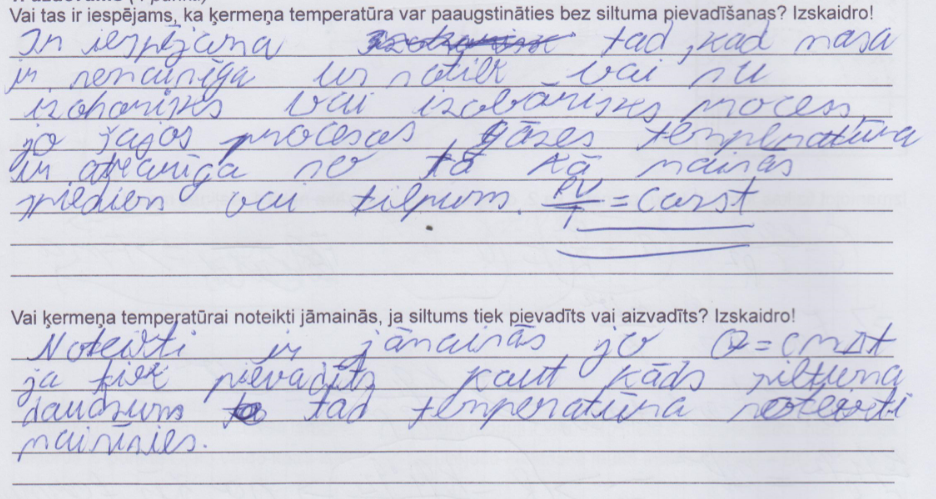 Vai tas ir iespējams, ka ķermeņa temperatūra var paaugstināties bez siltuma pievadīšanas? Izskaidro!
Ir iespējama tad, kad masa
ir nemainīga un notiek vai nu
izohorisks vai izobārisks process
jo šajos procesos gāzes temperatūra
ir atkarīga no tā kā mainās
spiediens vai tilpums. PV/T = const
Vai ķermeņa temperatūrai noteikti jāmainās, ja siltums tiek pievadīts vai aizvadīts? Izskaidro!
Noteikti ir jāmainās jo Q=cmΔt
ja tiek pievadīts kaut kāds siltuma
daudzums tad temperatūra noteikti
mainīsies.